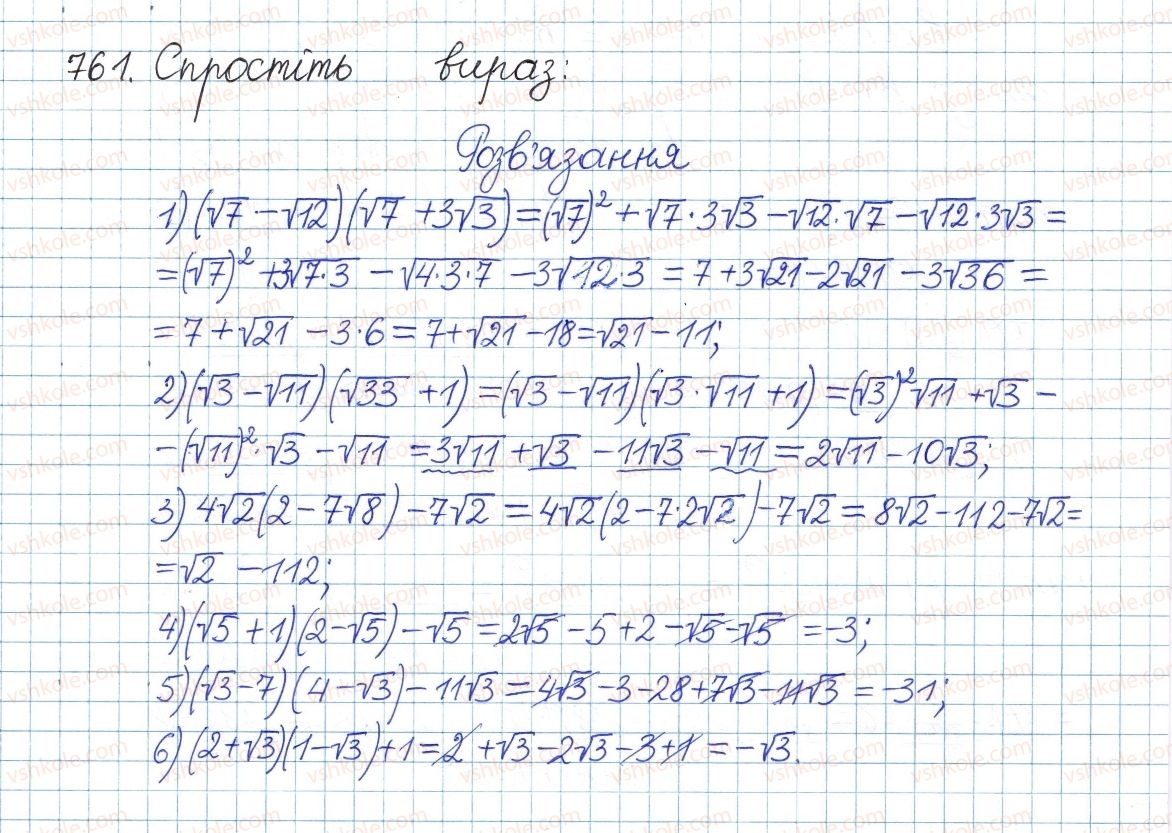 761. Спростіть вираз:
Розв'язання
1) (√7 - √12)(√7 + 3√3) = (√7)² + √7·3√3 - √12·√7 - √12·3√3 =
= (√7)² + 3√7·3 - √4·3·7 - 3√12·3 = 7 + 3√21 - 2√21 - 3√36 =
= 7 + √21 - 3·6 = 7 + √21 - 18 = √21 - 11;
2) (√3 - √11)(√33 + 1) = (√3 - √11)(√3·√11 + 1) = (√3)²√11 + √3 -
- (√11)²·√3 - √11 = 3√11 + √3 - 11√3 - √11 = 2√11 - 10√3;
3) 4√2(2 - 7√8) - 7√2 = 4√2(2 - 7·2√2) - 7√2 = 8√2 - 112 - 7√2 =
= √2 - 112;
4) (√5 + 1)(2 - √5) - √5 = 2√5 - 5 + 2 - √5 - √5 = -3;
5) (√3 - 7)(4 - √3) - 11√3 = 4√3 - 3 - 28 + 7√3 - 11√3 = -31;
6) (2 + √3)(1 - √3) + 1 = 2 + √3 - 2√3 - 3 + 1 = -√3.
vshkole.com